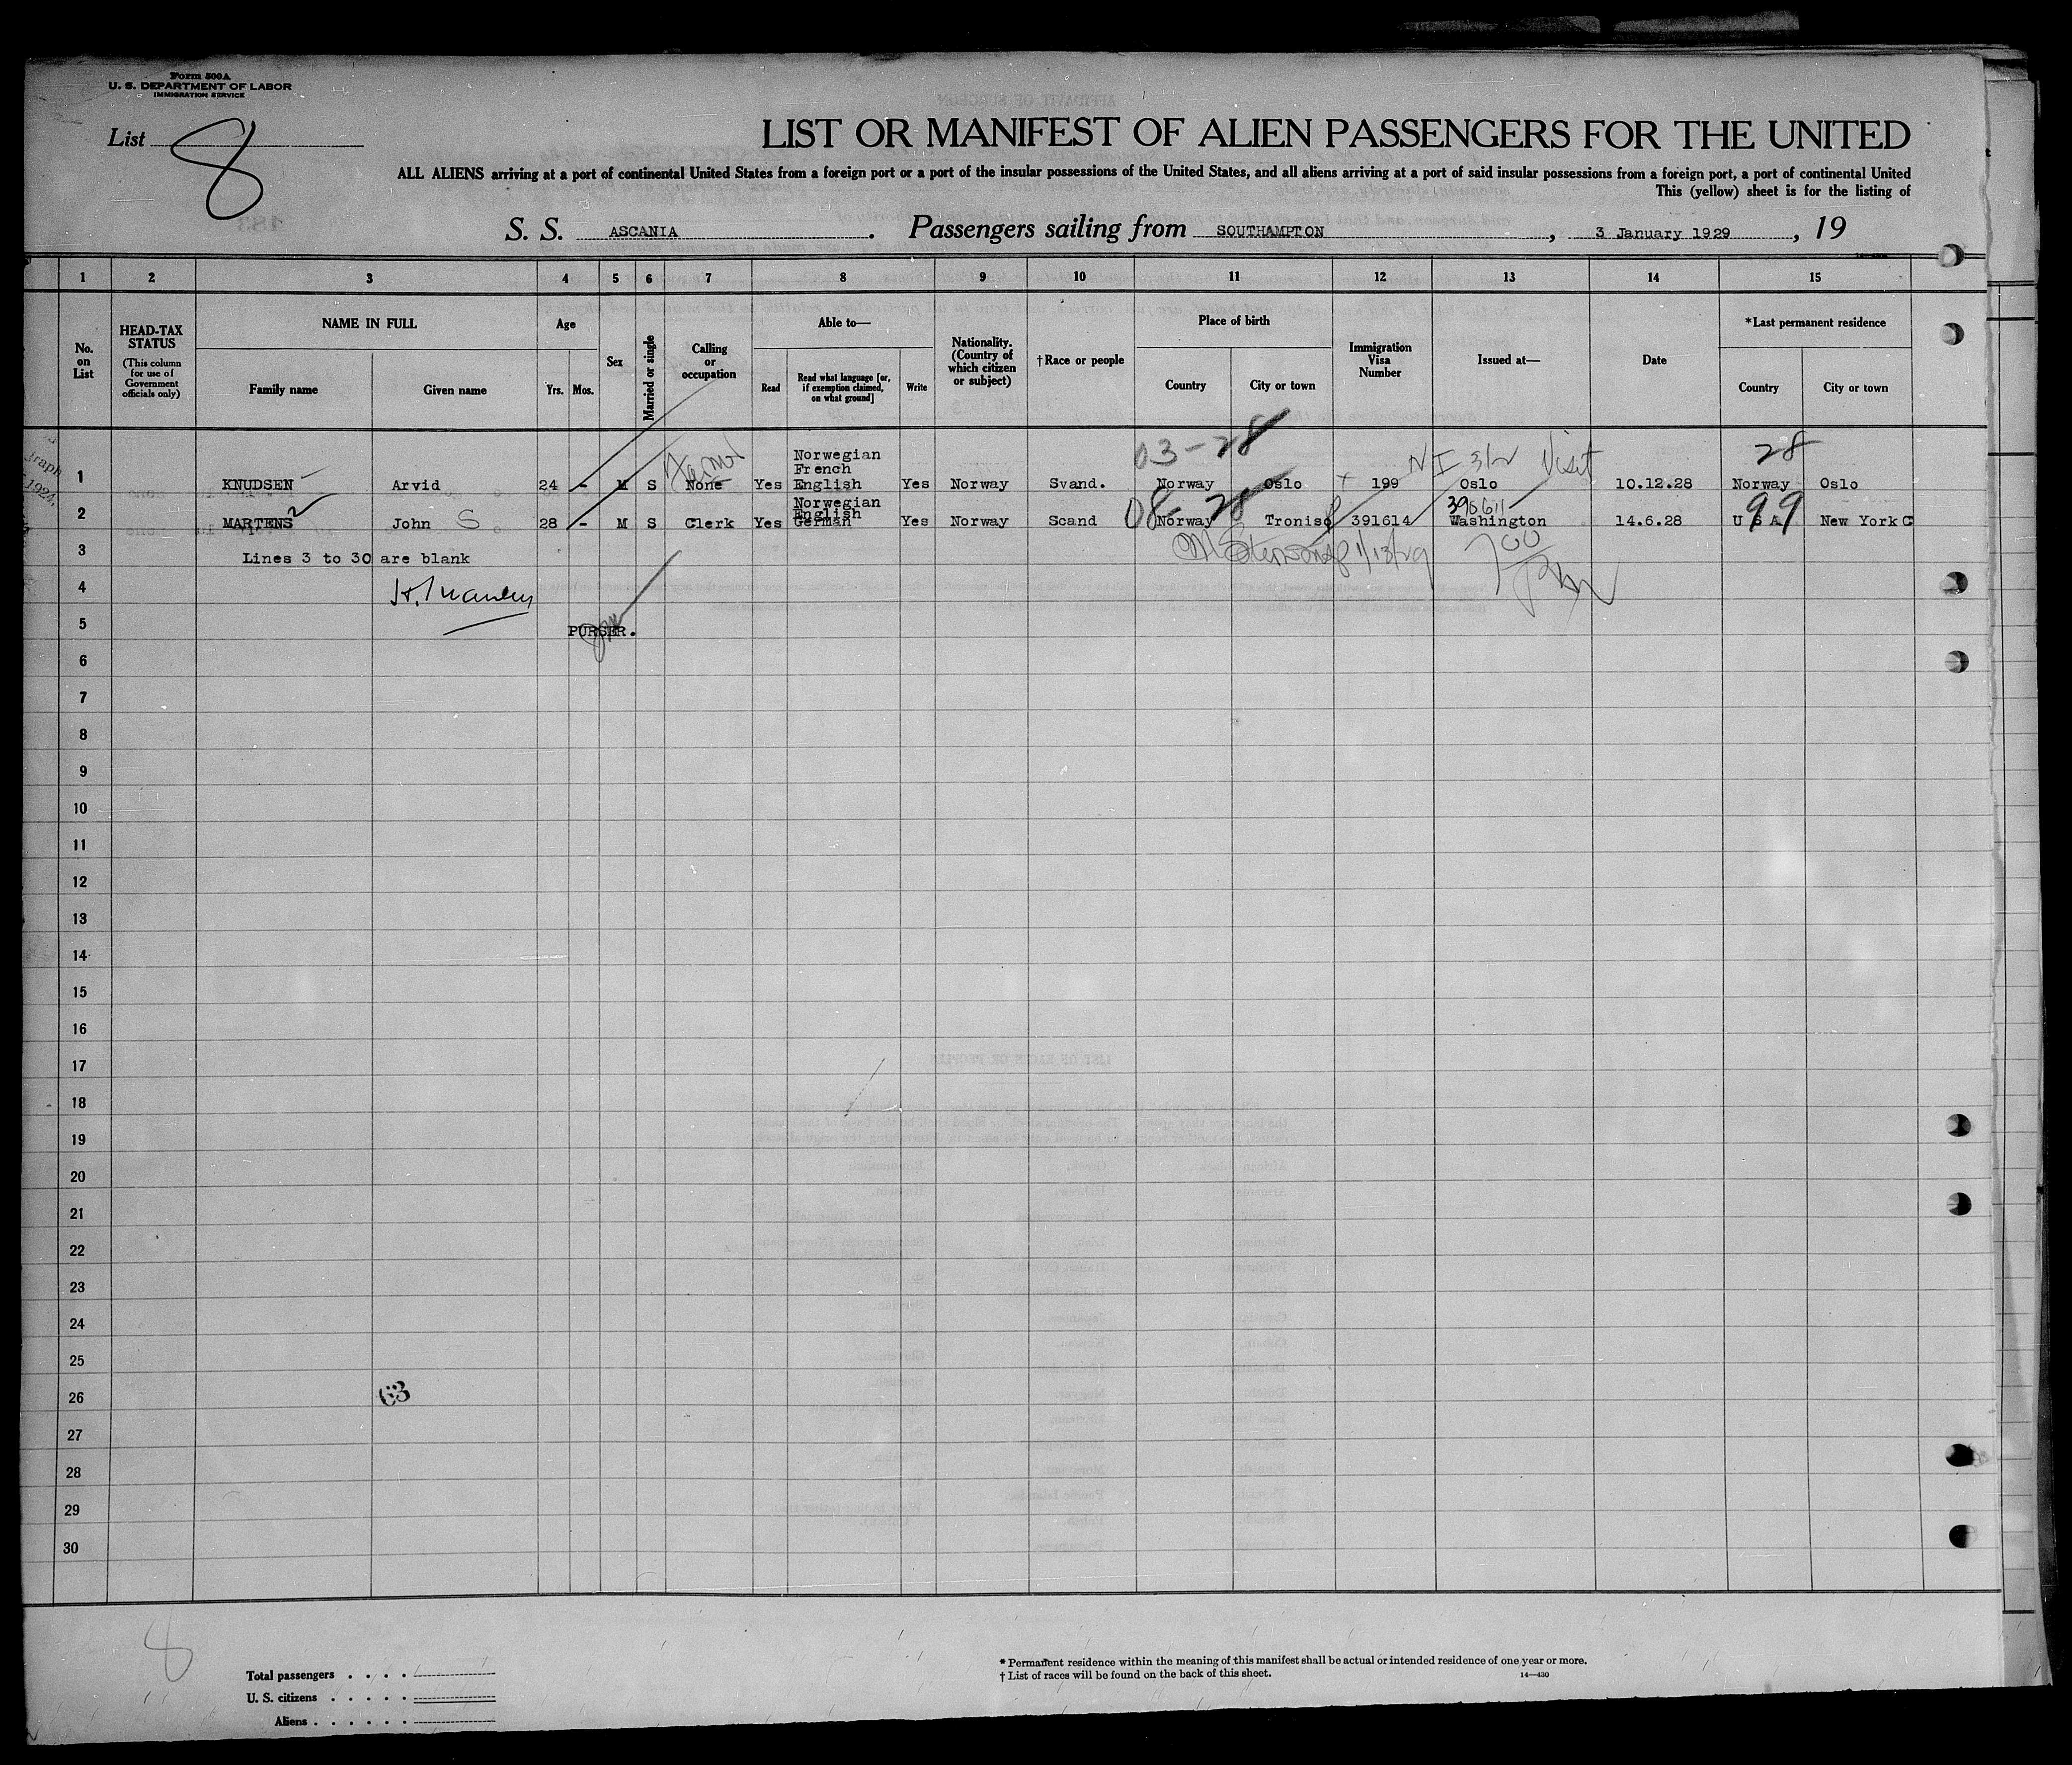 Form 500A
U. S. DEPARTMENT OF LABOR
IMMIGRATION SERVICE
List 8
LIST OR MANIFEST OF ALIEN PASSENGERS FOR THE UNITED
ALL ALIENS arriving at a port of continental United States from a foreign port or a port of the insular possessions of the United States, and all aliens arriving at a port of said insular possessions from a foreign port, a port of continental United
This (yellow) sheet is for the listing of
S. S. ASCANIA. Passengers sailing from SOUTHAMPTON, 3 January 1929, 19
1 2 3 4 5 6 7 8 9 10 11 12 13 14 15
No. on List
HEAD-TAX STATUS
(This column for use of Government officials only)
NAME IN FULL
Family name
Given name
Age
Yrs. Mos.
Sex
Married or single
Calling or occupation
Able to—
Read
Read what language [or, if exemption claimed, on what ground]
Write
Nationality. (Country of which citizen or subject)
†Race or people
Place of birth
Country
City or town
Immigration Visa Number
Issued at—
Date
*Last permanent residence
Country
City or town
graph
1924,
03-28 NI 3/2 Visit 28
1 KNUDSEN Arvid 24 - M S None Yes Norwegian French English Yes Norway Svand. Norway Oslo 199 Oslo 10.12.28 Norway Oslo
08 28 395611 99
2 MARTENS John S 28 - M S Clerk Yes Norwegian English German Yes Norway Scand Norway Tronisø 391614 Washington 14.6.28 U S A New York C
3 Lines 3 to 30 are blank 1/13/29 700
4
5 PURSER.
6
7
8
9
10
11
12
13
14
15
16
17
18
19
20
21
22
23
24
25
26 63
27
28
29
30
8
Total passengers . . . .
U. S. citizens . . . . .
Aliens . . . . . .
* Permanent residence within the meaning of this manifest shall be actual or intended residence of one year or more.
† List of races will be found on the back of this sheet.
14—430